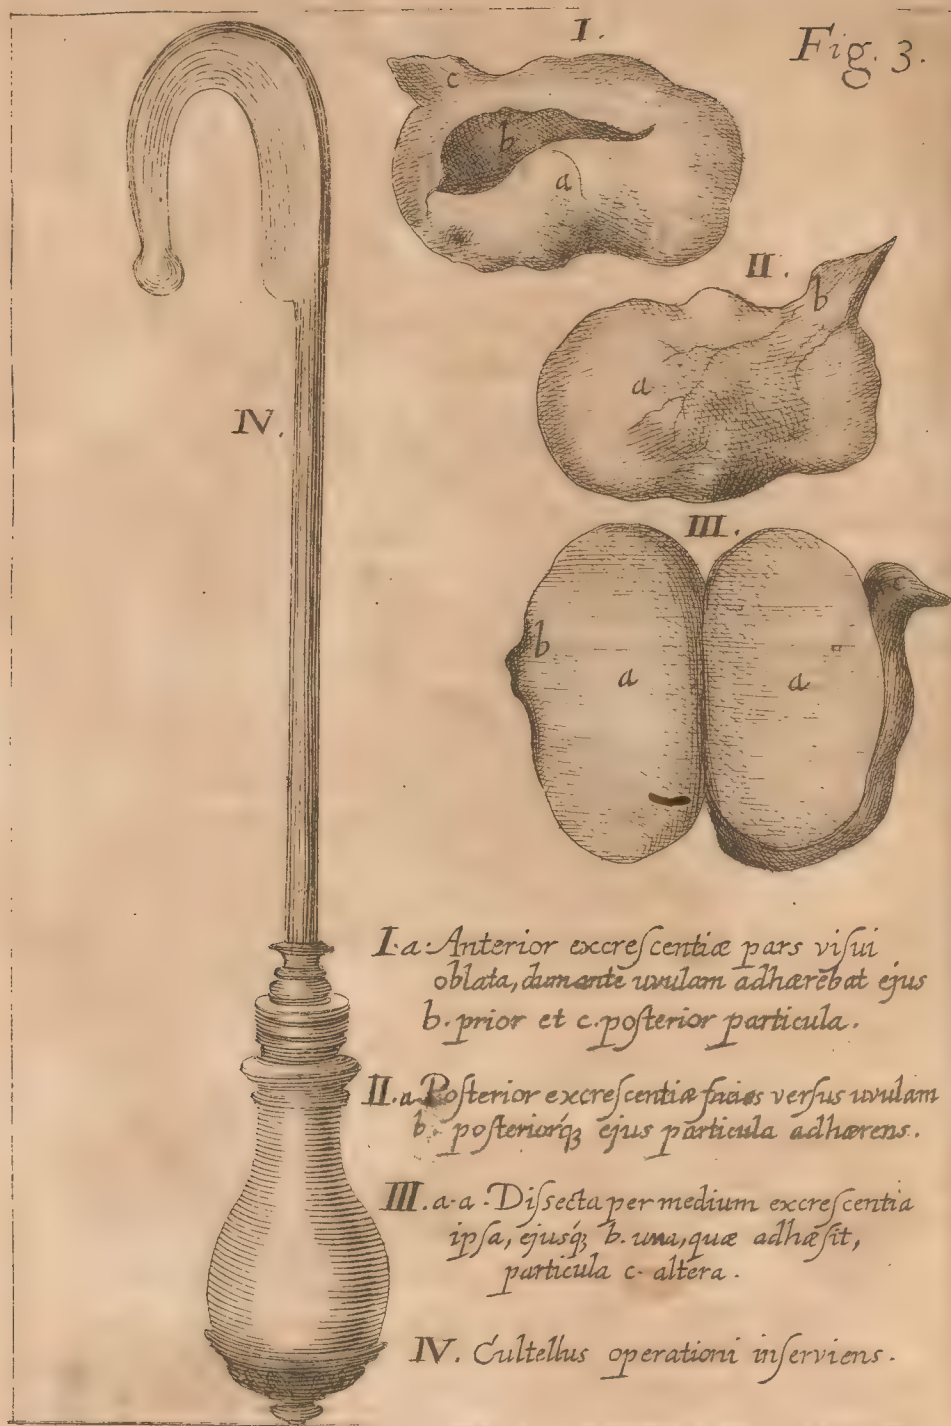 I.
Fig. 3.
c
b
a
II.
b
a
IV.
III.
c
b
a
a
I.a. Anterior excreſcentiæ pars viſui
oblata, dum ante uvulam adhærebat ejus
b. prior et c. poſterior particula.
II.a Poſterior excreſcentiæ facies verſus uvulam
b. poſteriorq́ꝫ ejus particula adhærens.
III. a.a. Diſſecta per medium excreſcentia
ipſa, ejusq́ꝫ b. una, quæ adhæſit,
particula c. altera.
IV. Cultellus operationi inſerviens.